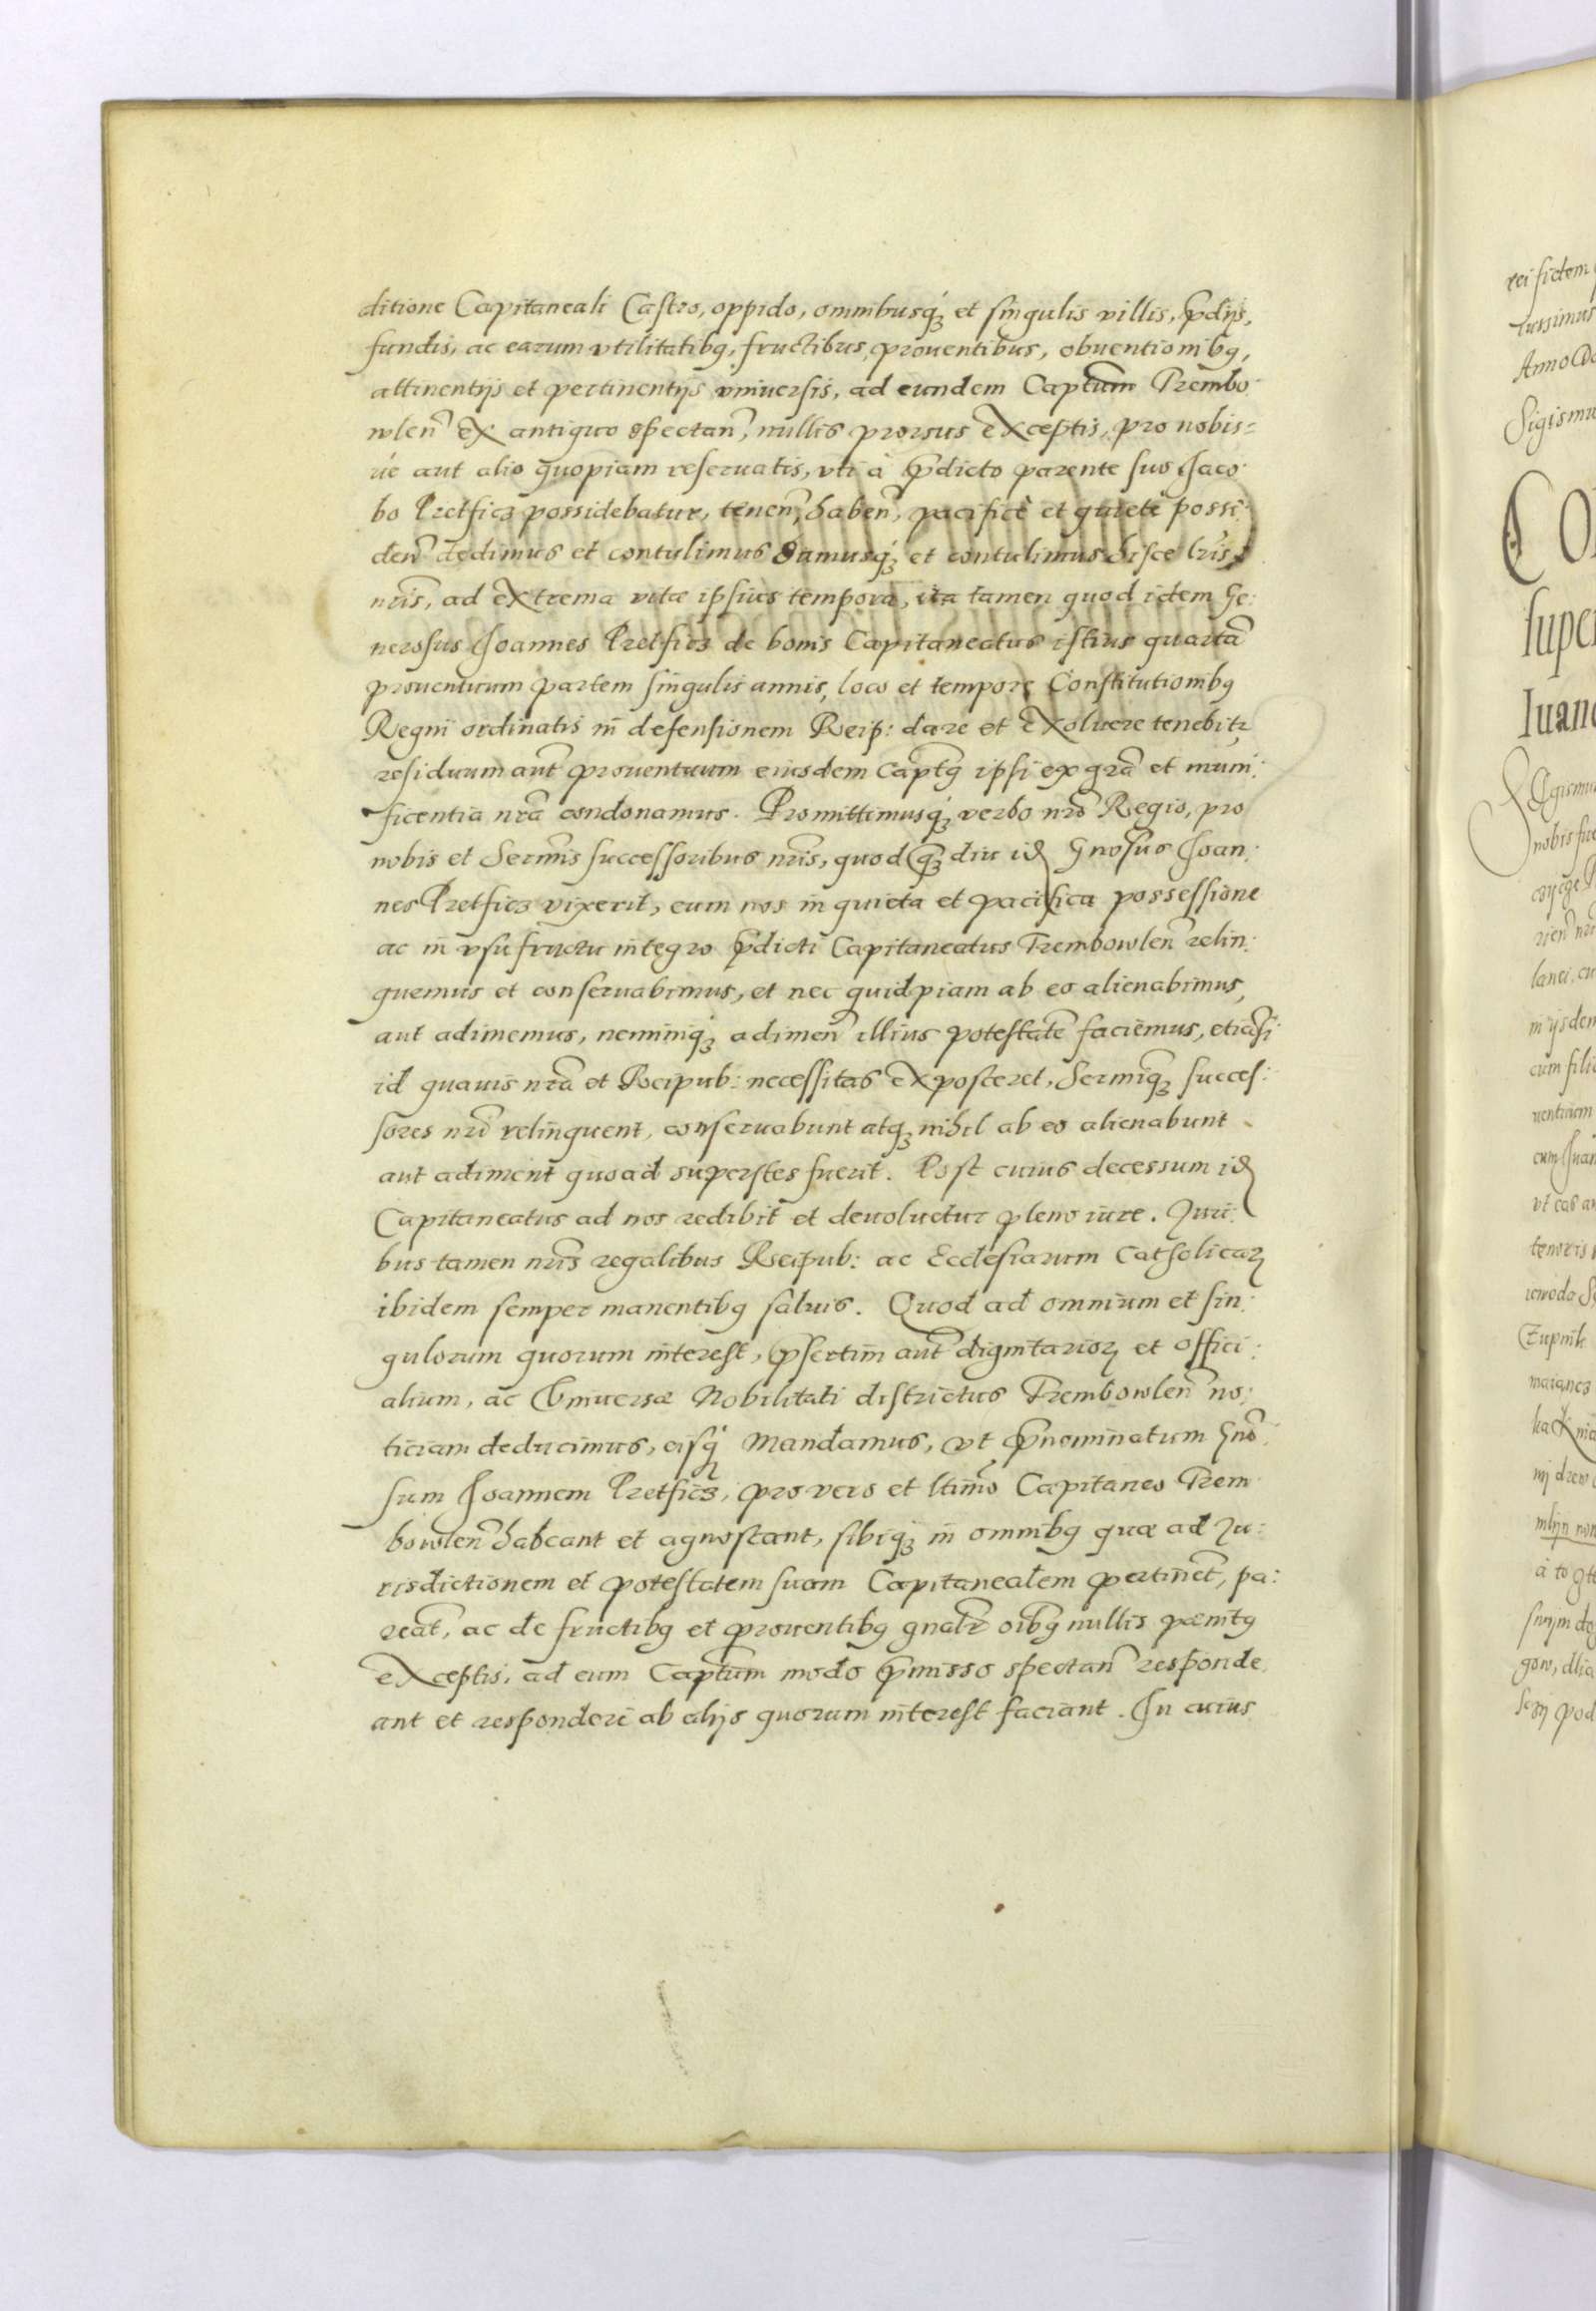 ditione Capitaneali Castro, oppido, omnibusq́ꝫ et singulis villis, p̄dijs,
fundis, ac earum vtilitatibꝰ, fructibus, prouentibus, obuentionibꝰ,
attinentijs et pertinentijs vniuersis, ad eundem Captum̄ Trembo
wlen̄ ex antiquo spectan̄, nullis prorsus exceptis, pro nobis=
ue aut alio quopiam reseruatis, vti à p̄dicto parente suo Jaco
bo Pretficz possidebatur, tenen̄, haben̄, pacificè et quietè possi:
den̄ dedimus et contulimus damusq́ꝫ et contulimus hisce lr̄is
nr̄is, ad extrema vitæ ipsius tempora, ita tamen quod idem Ge:
nerosus Joannes Pretficz de bonis Capitaneatus istius quartā
prouentuum partem singulis annis, loco et tempore Constitutionibꝰ
Regni ordinatis in defensionem Reip: dare et exoluere tenebitr
residuum aut̄ prouentuum eiusdem Captꝰ ipsi ex grā et muni:
ficentia nr̄a condonamus. Promittimusq́ꝫ verbo nr̄o Regio, pro
nobis et Serm̄is successoribus nr̄is, quod q̄ꝫ diu id̄ Gnosus Joan:
nes Pretficz vixerit, eum nos in quieta et pacifica possessione
ac in vsufructu integro p̄dicti Capitaneatus Trembowlen̄ relin:
quemus et conseruabimus, et nec quidpiam ab eo alienabimus,
aut adimemus, neminiq́ꝫ adimen̄ illius potestatē faciemus, etiāsi
id quauis nr̄a et Reipub: necessitas exposceret, Sermiq̄ꝫ succes:
sores nr̄i relinquent, conseruabunt atqꝫ nihil ab eo alienabunt
aut adiment quoad superstes fuerit. Post cuius decessum id̄
Capitaneatus ad nos redibit et deuoluetur pleno iure. Juri:
bus tamen nr̄is regalibus Reipub: ac Ecclesiarum Catholicaꝝ
ibidem semper manentibꝰ saluis. Quod ad omnium et sin:
gulorum quorum interest, p̄sertim aut̄ dignitarioꝝ et offici:
alium, ac Vniuersæ Nobilitati districtus Trembowlen̄ no:
ticiam deducimus, eisq́ꝫ Mandamus, vt p̄nominatum Gno̅
sum Joannem Pretficz, pro vero et ltimo̅ Capitaneo Trem
bowlen̄ habeant et agnoscant, sibiq́ꝫ in omnibꝰ quæ ad Ju:
risdictionem et potestatem suam Capitanealem pertinēt, pa:
reāt, ac de fructibꝰ et prouentibꝰ gnalr̄ oībꝰ nullis pænitꝰ
exceptis, ad eum Captum̄ modo p̄misso spectan̄ responde
ant et responderi ab alijs quorum interest faciant. In cuius
rei fidem
Anno
Sigismu
CO
super
Iuan
nobis
lanei, cu
in ijsdem
cum filio
uentuum
cum Juan
vt eas
tenoris